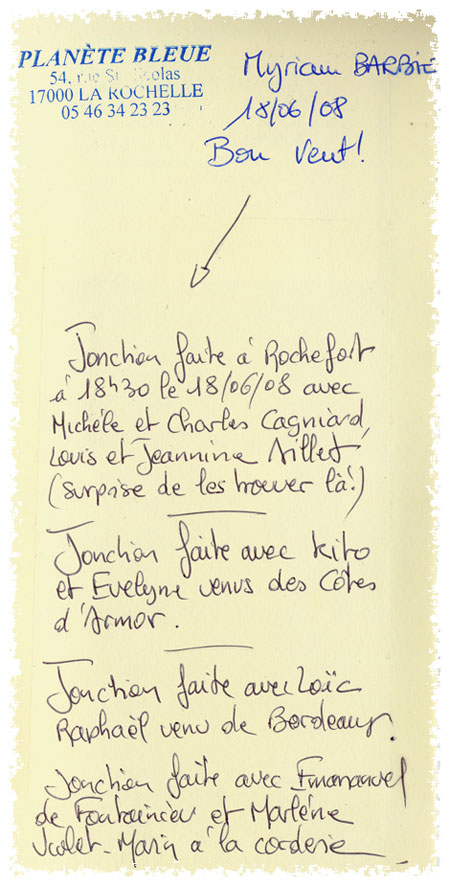 PLANÈTE BLEUE
54, rue St. Nicolas
17000 LA ROCHELLE
05 46 34 23 23
Myriam BARBIE
18/06/08
Bon Vent!
Jonction faite à Rochefort
à 18h30 le 18/06/08 avec
Michèle et Charles Cagniard,
Louis et Jeannine Aillet
(surprise de les trouver là!)
Jonction faite avec Kito
et Evelyne venus des Côtes
d'Armor.
Jonction faite avec Loïc
Raphaël venu de Bordeaux.
Jonction faite avec Emmanuel
de Fontainieu et Marlène
-Marin à la corderie